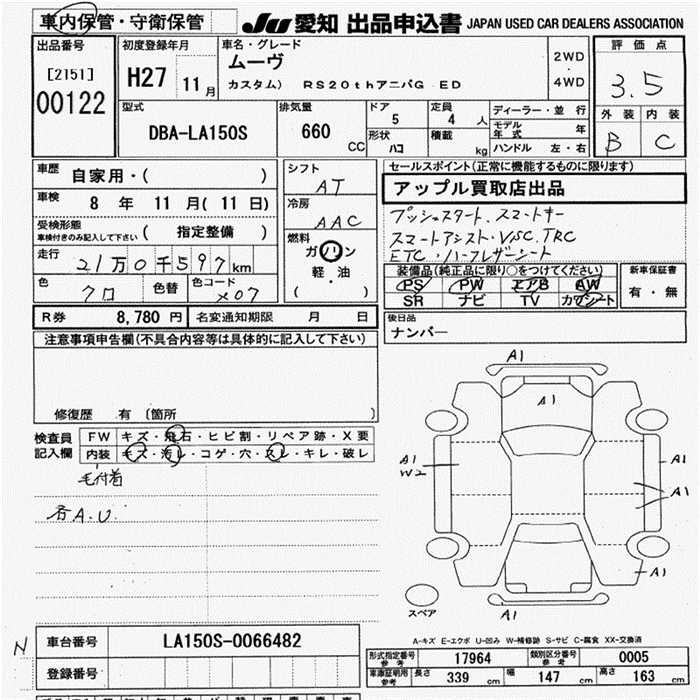 車内保管・守衛保管
JU 愛知 出品申込書 JAPAN USED CAR DEALERS ASSOCIATION
出品番号
[2151]
00122
初度登録年月
H27 11 月
車名・グレード
ムーヴ
カスタム) RS20thアニバG ED
2WD
・
4WD
評価点
3.5
外装 内装
B C
型式
DBA-LA150S
排気量
660 CC
ドア
5
定員
4 人
形状
ハコ
積載
kg
ディーラー・並行
モデル年式 年
ハンドル 左・右
車歴 自家用・( )
車検 8 年 11 月( 11 日)
受検形態
車検付きのみ記入して下さい ( 指定整備 )
走行 21万0千597km
色 クロ 色替 色コード X07
シフト
AT
冷房
AAC
燃料
ガソリン
軽・油
( )
セールスポイント(正常に機能するものに限ります)
アップル買取店出品
プッシュスタート、スマートキー
スマートアシスト・VSC.TRC
ETC・ハーフレザーシート
装備品(純正品に限り○をつけてください)
PS PW エアB AW
SR ナビ TV カワシート
新車保証書
有・無
R券 8,780 円 名変通知期限 月 日
後日品
ナンバー
注意事項申告欄(不具合内容等は具体的に記入して下さい)
修復歴 有 〔箇所 〕
検査員
記入欄
FW キズ・飛石・ヒビ割・リペア跡・X要
内装 キズ・汚レ・コゲ・穴・スレ・キレ・破レ
毛付着
各A.U.
A1
A1
A1
W2
A1
A1
A1
A1
スペア
A-キズ E-エクボ U-凹み W-補修跡 S-サビ C-腐食 XX-交換済
N
車台番号 LA150S-0066482
登録番号
形式指定番号
参考
17964
類別区分番号
参考
0005
車庫証明用
参考
長さ 339 cm 幅 147 cm 高さ 163 cm